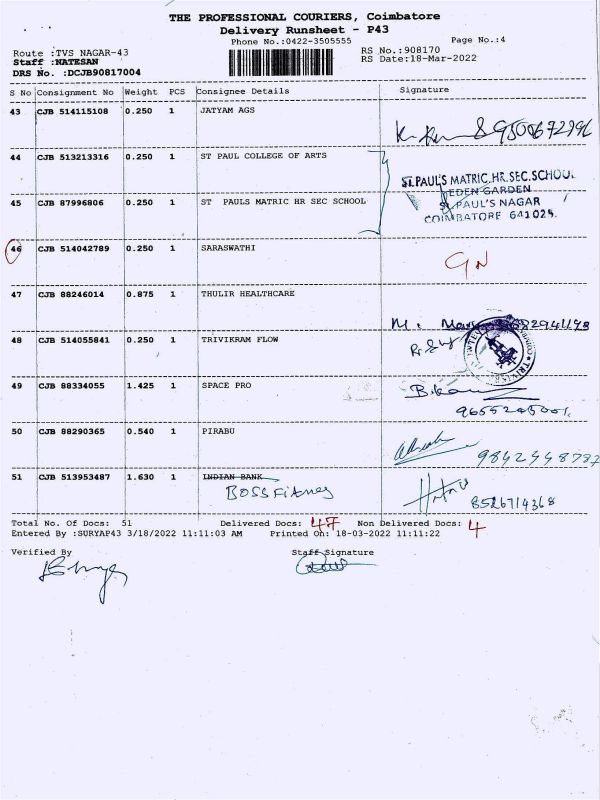 THE PROFESSIONAL COURIERS, Coimbatore
Delivery Runsheet - P43
Phone No.:0422-3505555
Page No.:4
Route :TVS NAGAR-43
RS No.:908170
Staff :NATESAN
RS Date:18-Mar-2022
DRS No. :DCJB90817004
S No Consignment No Weight PCS Consignee Details Signature
43 CJB 514115108 0.250 1 JATYAM AGS
44 CJB 513213316 0.250 1 ST PAUL COLLEGE OF ARTS
ST.PAUL'S MATRIC.HR.SEC.SCHOOL
EDEN GARDEN
45 CJB 87996806 0.250 1 ST PAULS MATRIC HR SEC SCHOOL
ST.PAUL'S NAGAR
COIMBATORE 641025.
46 CJB 514042789 0.250 1 SARASWATHI
47 CJB 88246014 0.875 1 THULIR HEALTHCARE
48 CJB 514055841 0.250 1 TRIVIKRAM FLOW
49 CJB 88334055 1.425 1 SPACE PRO
50 CJB 88290365 0.540 1 PIRABU
51 CJB 513953487 1.630 1 INDIAN BANK
BOSS Fitney
8526714368
Total No. Of Docs: 51 Delivered Docs: 47 Non Delivered Docs: 4
Entered By :SURYAP43 3/18/2022 11:11:03 AM Printed On: 18-03-2022 11:11:22
Verified By Staff Signature